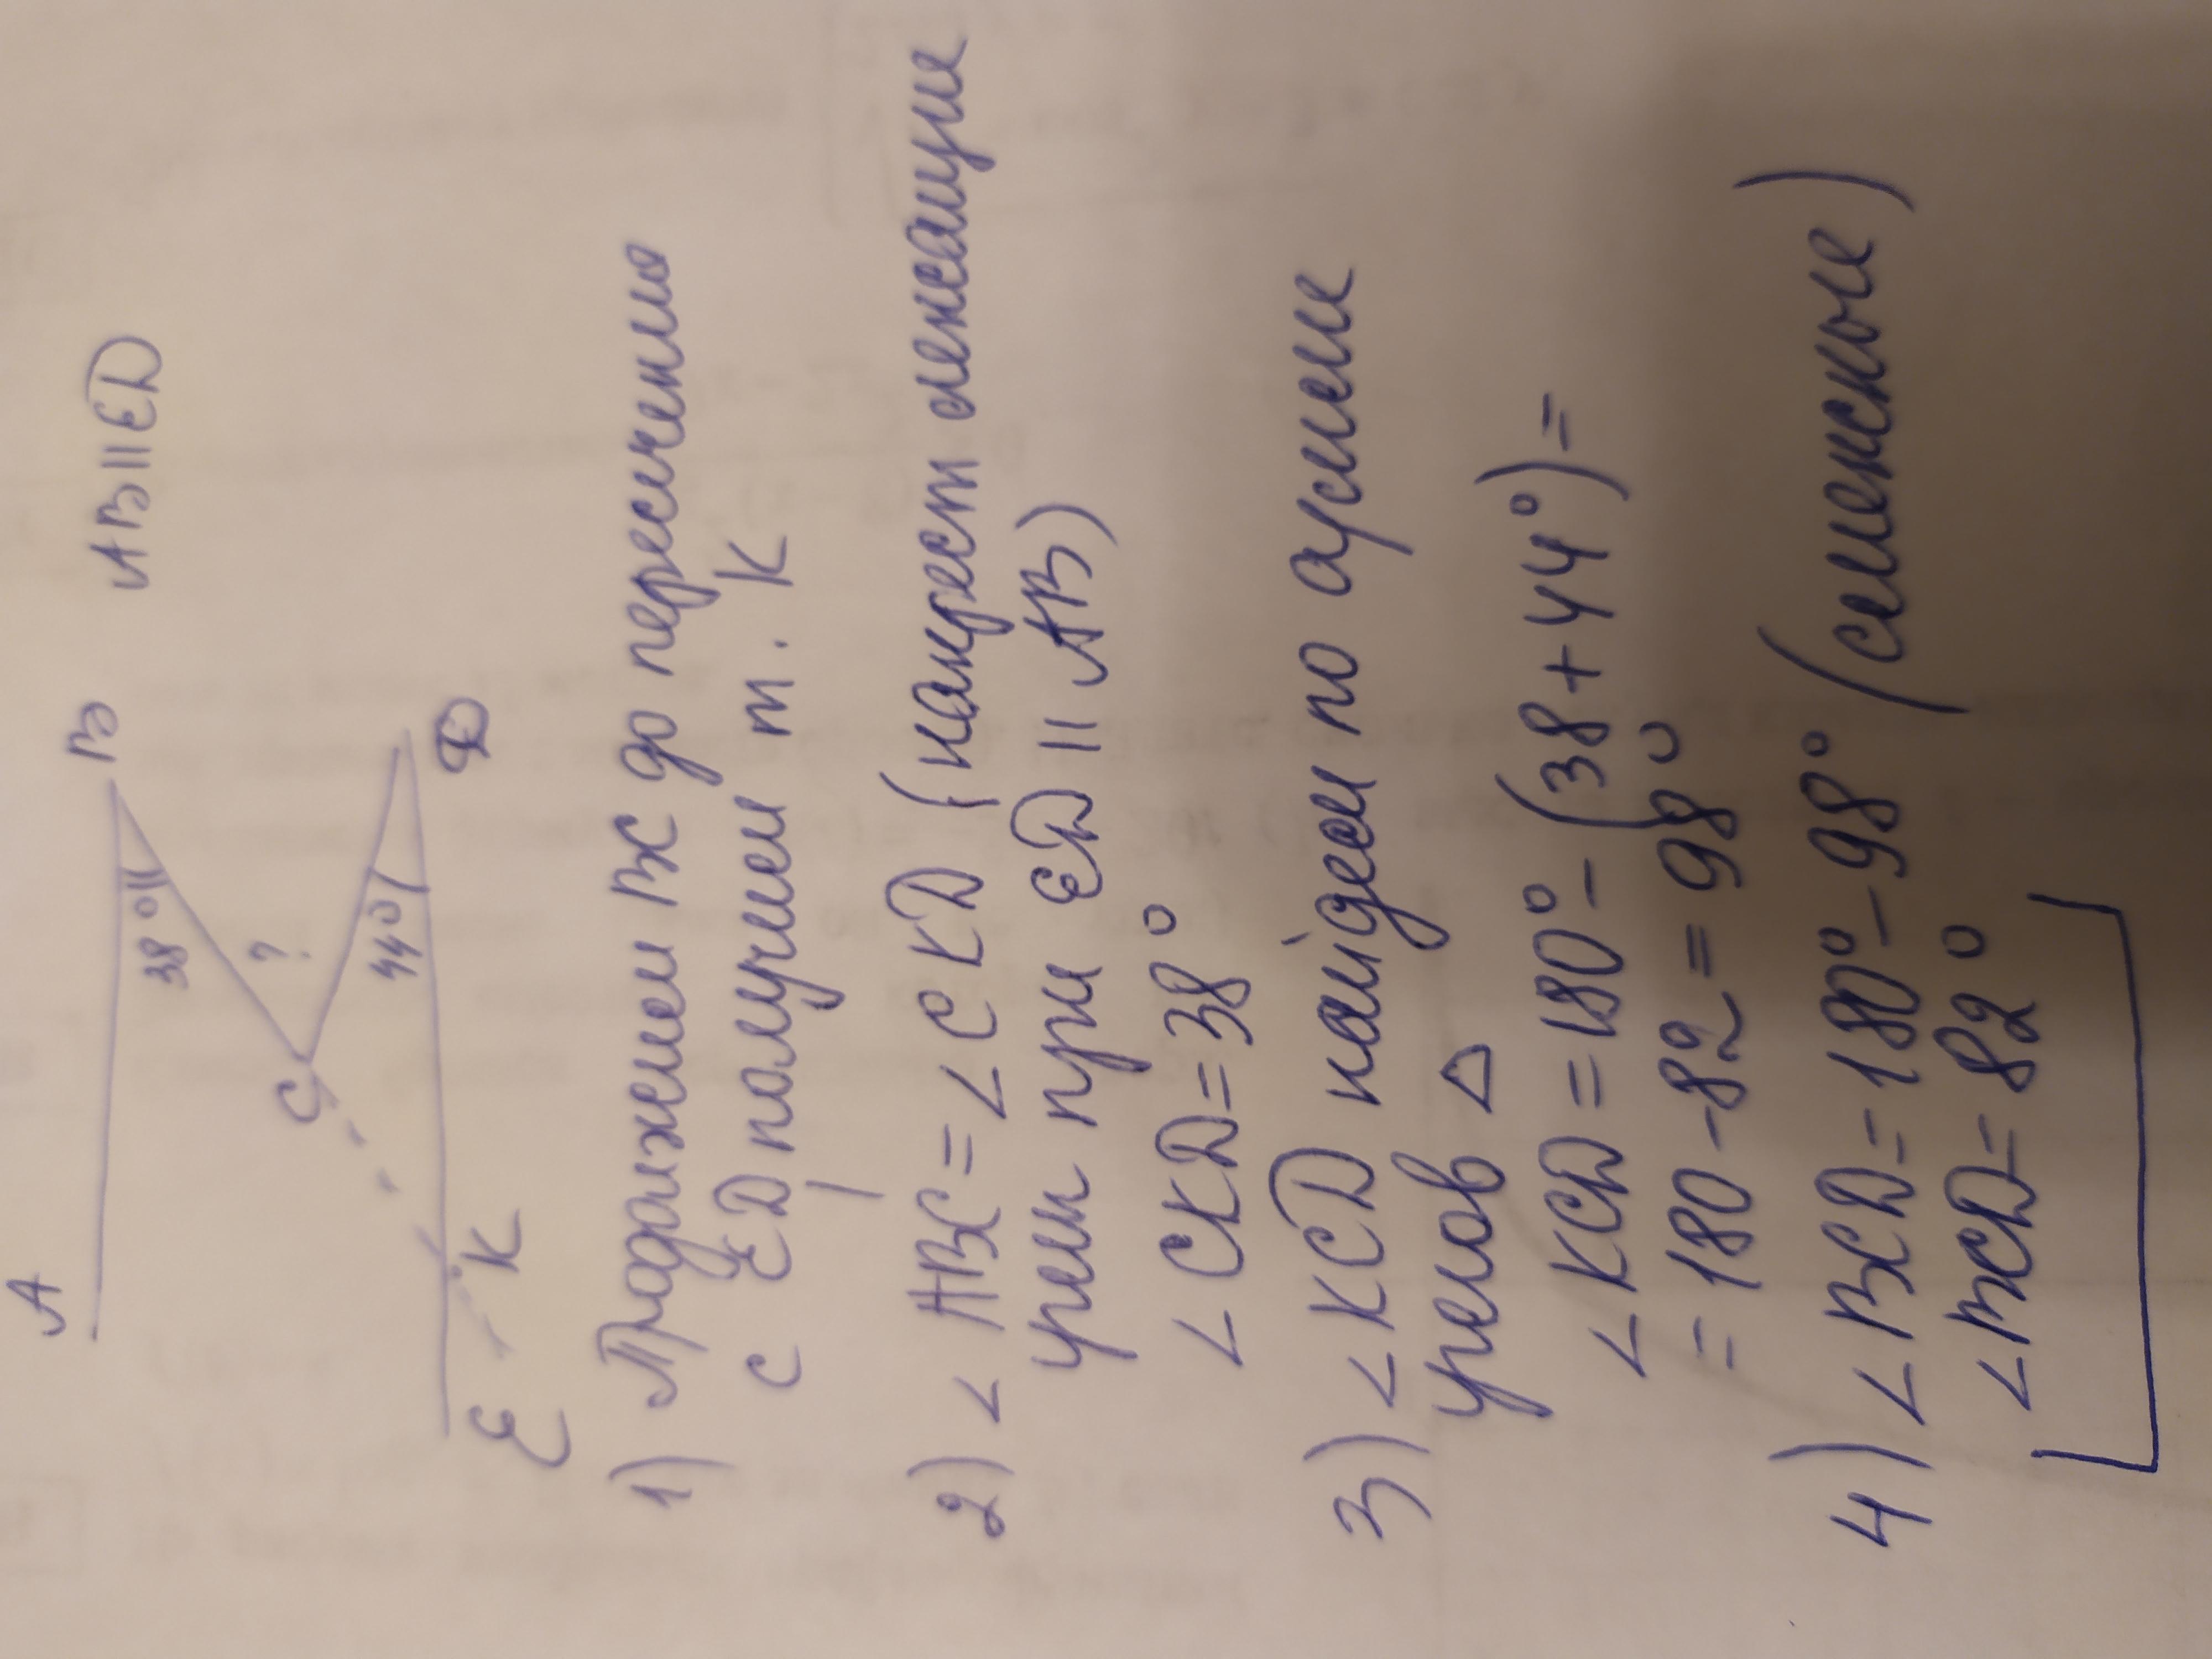 A B AB || ED
38°
?
C
44°
E K D
1) Продолжем BC до пересечения
с ED получием т. K
2) ∠ ABC = ∠ CKD (накрест лежащие
углы при ED || AB)
∠ CKD = 38°
3) ∠ KCD найдем по сумме
углов △
∠ KCD = 180° - (38 + 44°) =
= 180 - 82 = 98°
4) ∠ BCD = 180° - 98° (смежные)
∠ BCD = 82°